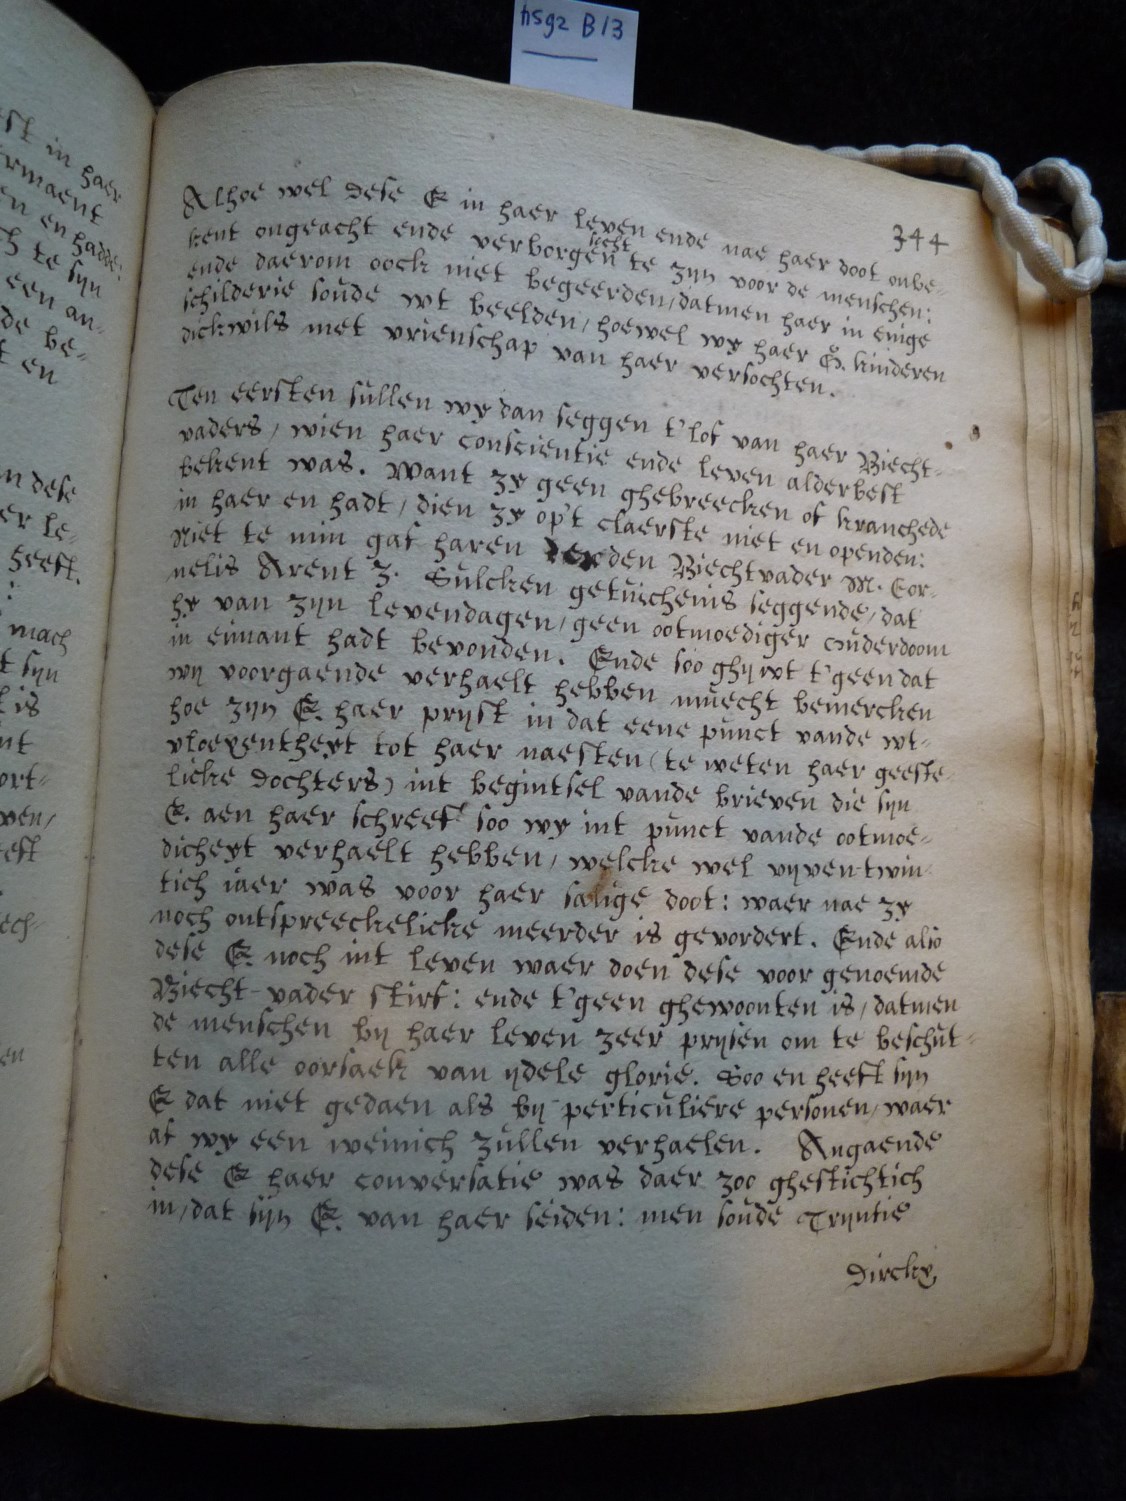 hsg2 B13
344
Alhoe wel dese E in haer leven ende nae haer doot onbe-
kent ongeacht ende verborgen socht te zyn voor de menschen:
ende daerom oock niet begeerden/datmen haer in enige
schilderie soude wt beelden/hoewel wy haer G. kinderen
dickwils met vrienschap van haer versochten.
Ten eersten sullen wy dan seggen t'lof van haer Biecht-
vaders/wien haer conscientie ende leven alderbest
bekent was. Want zy geen ghebreecken of kranchede
in haer en hadt/dien zy op't claerste niet en openden:
Niet te min gaf haren derden Biechtvader M. Cor-
nelis Arent z. Sulcken getuichenis seggende/dat
hy van zyn levendagen/geen ootmoediger ouderdoom
in eimant hadt bevonden. Ende soo ghij wt t'geen dat
wij voorgaende verhaelt hebben muecht bemercken
hoe zijn E. haer pryst in dat eene punct vande wt-
vloeyentheyt tot haer naesten (te weten haer geeste-
licke dochters) int begintsel vande brieven die sijn
E. aen haer schreef soo wy int punct vande ootmoe-
dicheyt verhaelt hebben/welcke wel vijventwin-
tich iaer was voor haer salige doot: waer nae zy
noch ontspreeckelicke meerder is gevordert. Ende also
dese E noch int leven waer doen dese voor genoemde
Biecht-vader stirf: ende t'geen ghewoonten is/datmen
de menschen bij haer leven zeer prijsen om te beschut-
ten alle oorsaek van ijdele glorie. Soo en heeft sijn
E dat niet gedaen als bij perticuliere personen/waer
af wy een weinich zullen verhaelen. Angaende
dese E haer conversatie was daer zoo ghestichtich
in/dat sijn E. van haer seiden: men soude Trijntie
Dircks